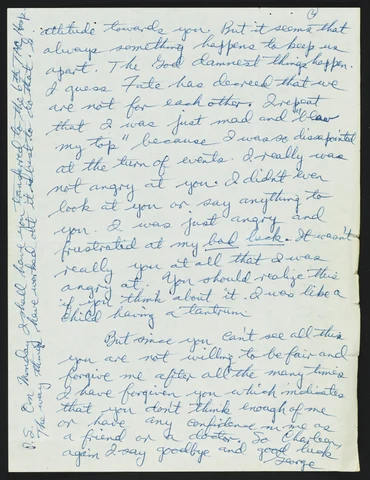 attitude towards you. But it seems that
always something happens to keep us
apart. The God damnest things happen.
I guess Fate has decreed that we
are not for each other. I repeat
that I was just mad and "blew
my top" because I was so dissapointed
at the turn of events. I really was
not angry at you. I didn't even
look at you or say anything to
you. I was just angry and
frustrated at my bad luck. It wasn't
really you at all that I was
angry at. You should realize this
if you think about it. I was like a
child having a tantrum.
But since you can't see all this
you are not willing to be fair and
forgive me after all the many times
I have forgiven you which indicates
that you don't think enough of me
or have any confidence in me as
a friend or a doctor. So Charleen,
again I say goodbye and good luck
George
P.S. On Monday I shall have you transferred to the 6th Hosp.
The way things have worked out it is best to do that